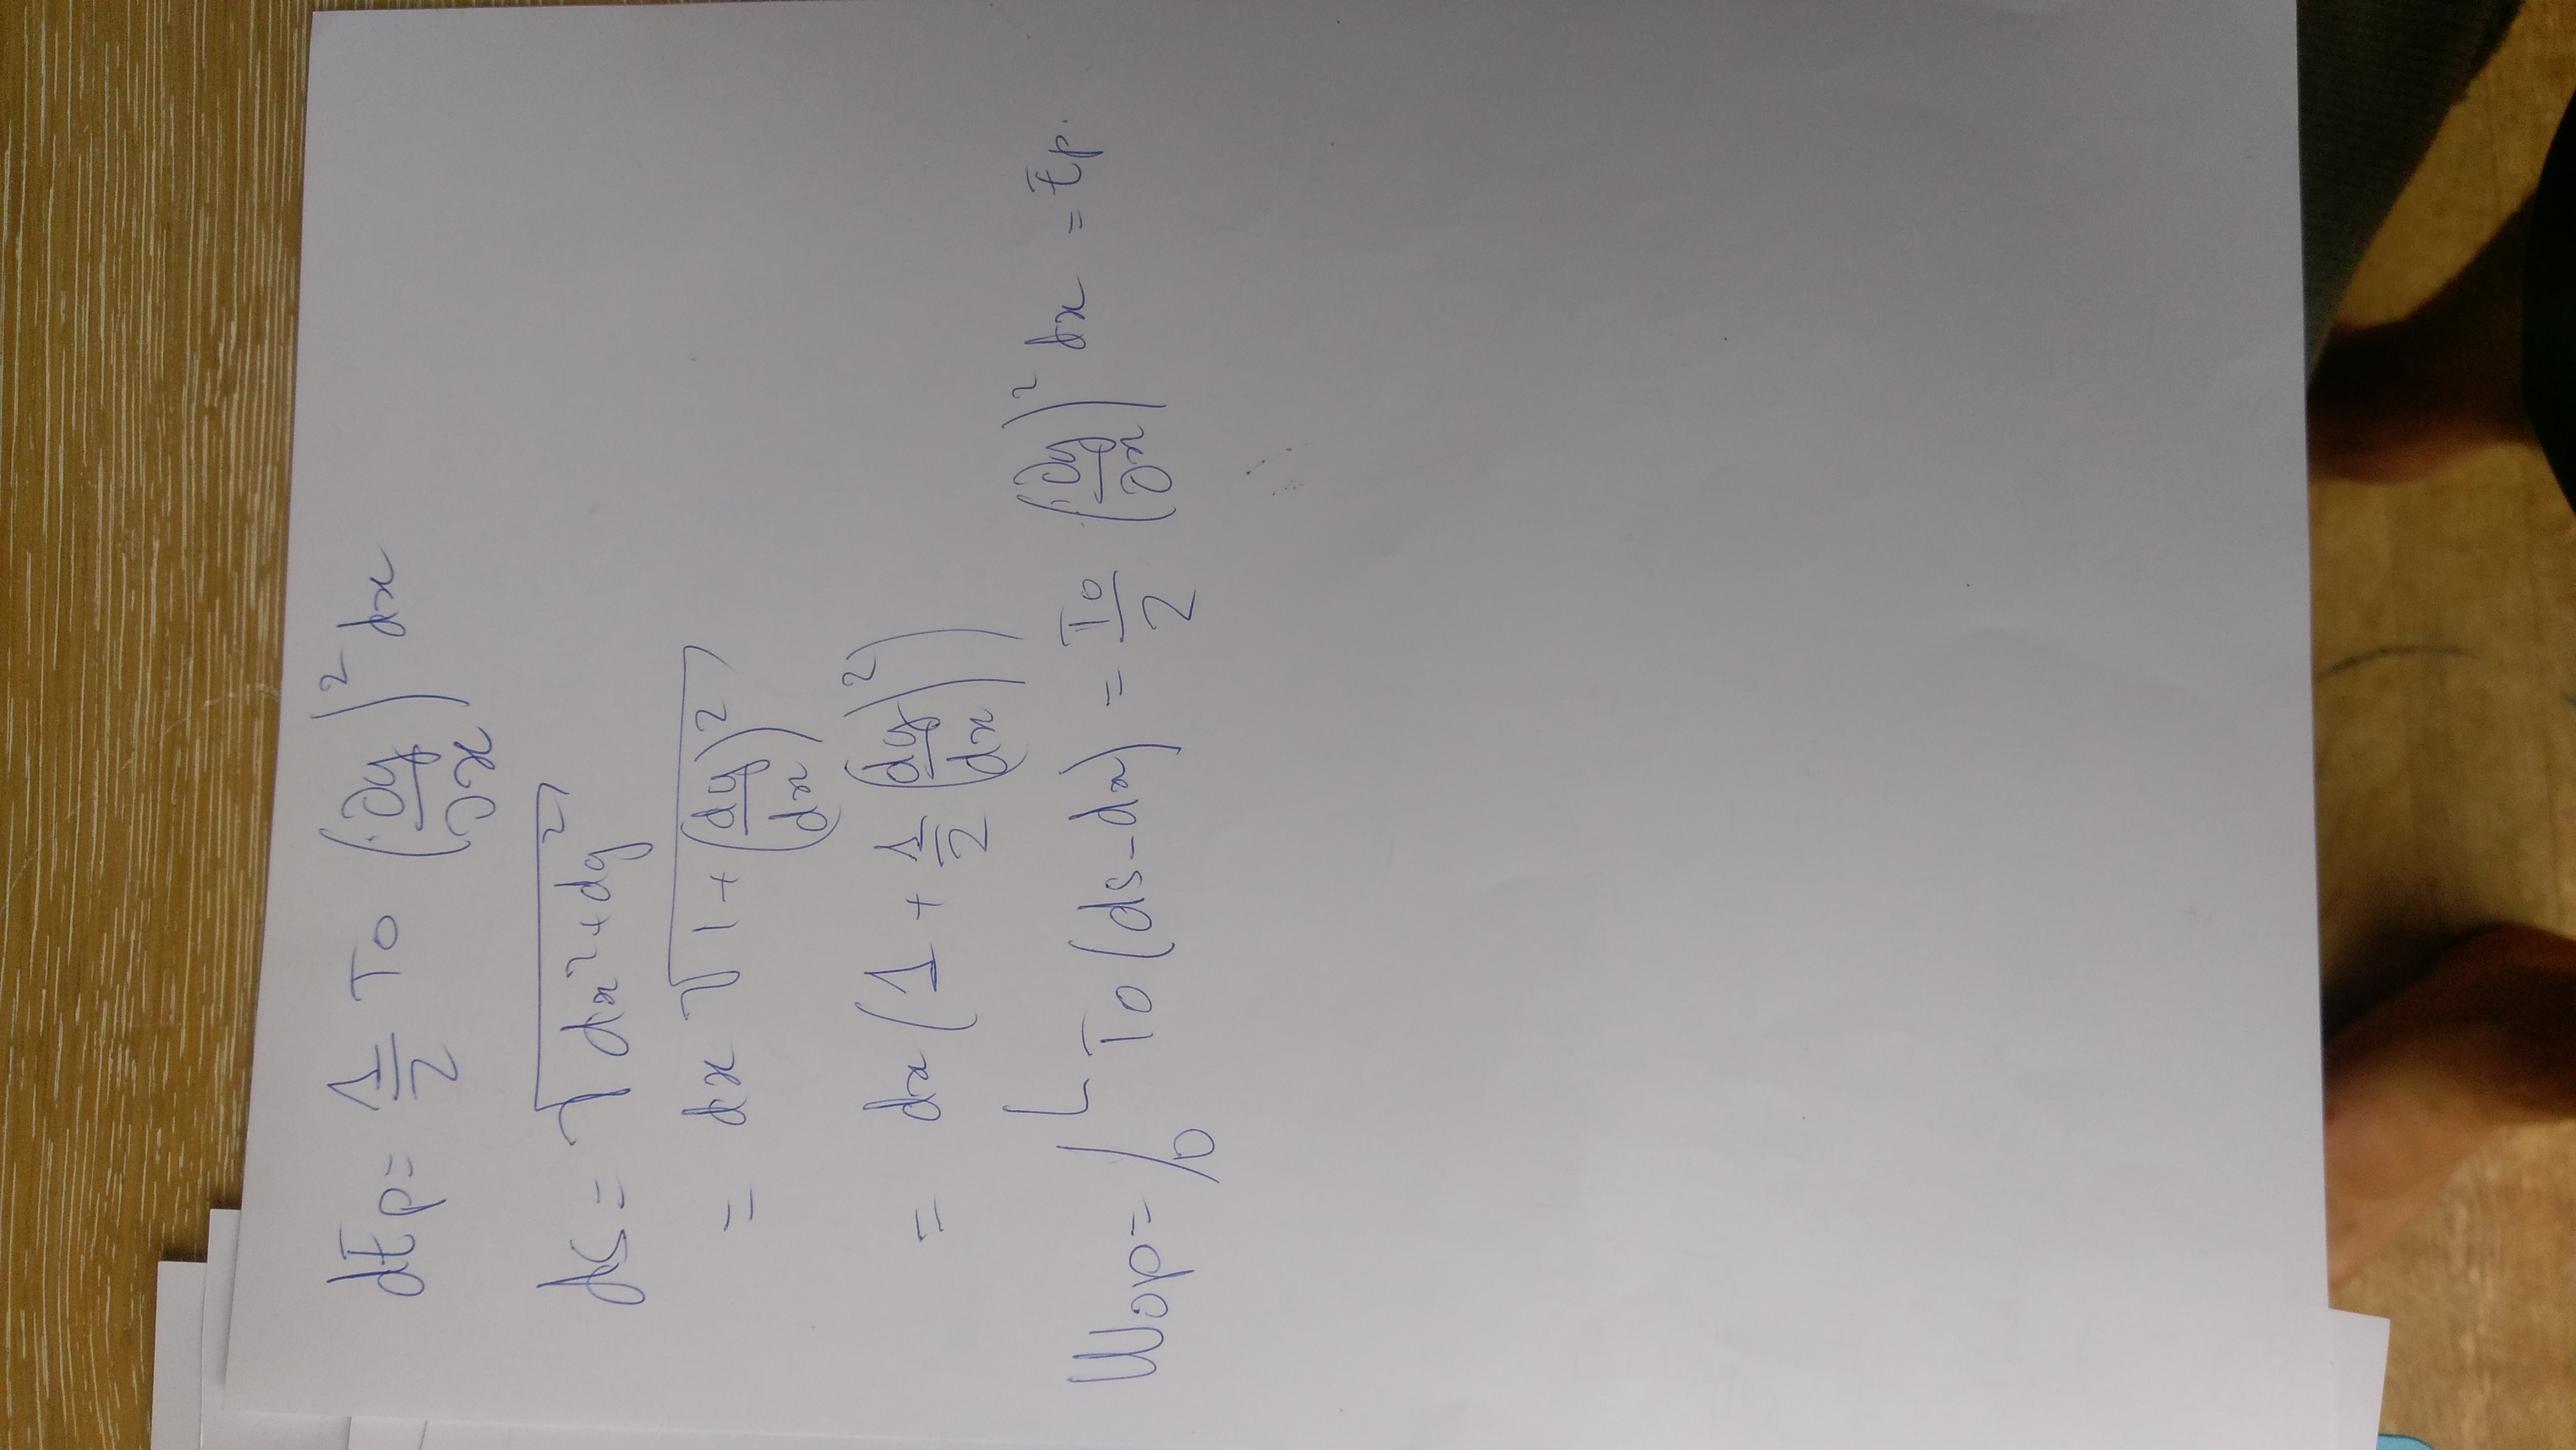 dEp = 1/2 To (∂y/∂x)² dx
ds = √(dx² + dy²)
= dx √(1 + (dy/dx)²)
= dx (1 + 1/2 (dy/dx)²)
Wop = ∫₀ᴸ To (ds - dx) = To/2 (∂y/∂x)² dx = Ep.